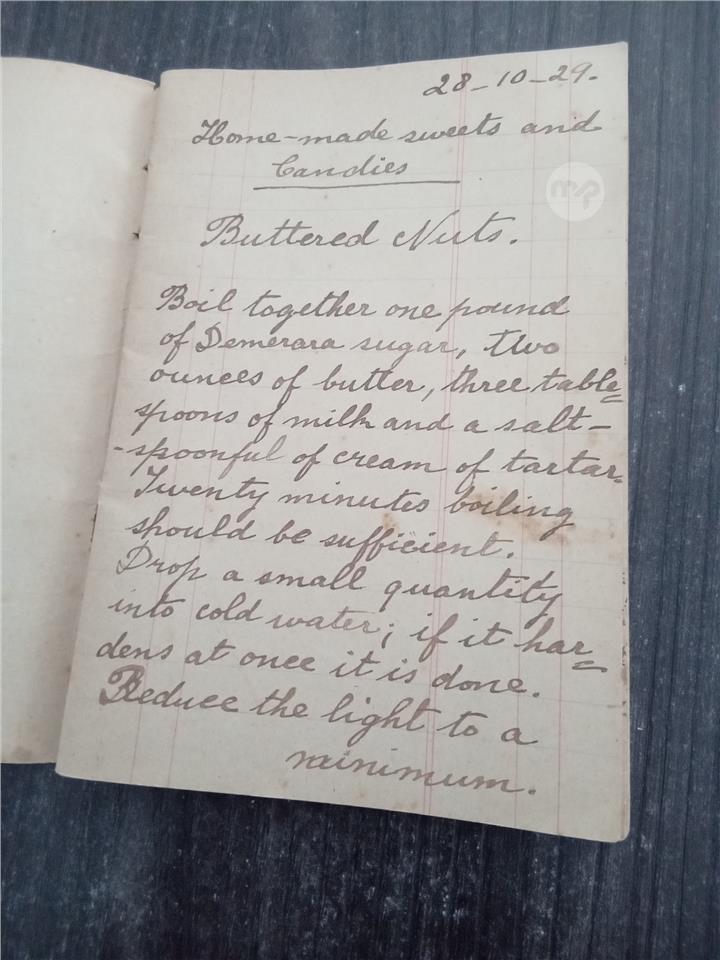 28-10-29.
Home-made sweets and
Candies
Buttered Nuts.
Boil together one pound
of Demerara sugar, two
ounces of butter, three table=
spoons of milk and a salt-
-spoonful of cream of tartar.
Twenty minutes boiling
should be sufficient.
Drop a small quantity
into cold water; if it har=
dens at once it is done.
Reduce the light to a
minimum.
mp